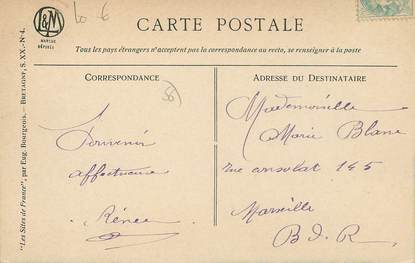 L&M
MARQUE
DÉPOSÉE
10 €
CARTE POSTALE
Tous les pays étrangers n'acceptent pas la correspondance au recto, se renseigner à la poste
CORRESPONDANCE
58
Souvenir
affectueux
Rénée
ADRESSE DU DESTINATAIRE
Mademoiselle
Marie Blanc
rue consolat 145
Marseille
B. d. R.
"Les Sites de France", par Eug. Bourgeois. — BRETAGNE, S. XX. - N° 4.